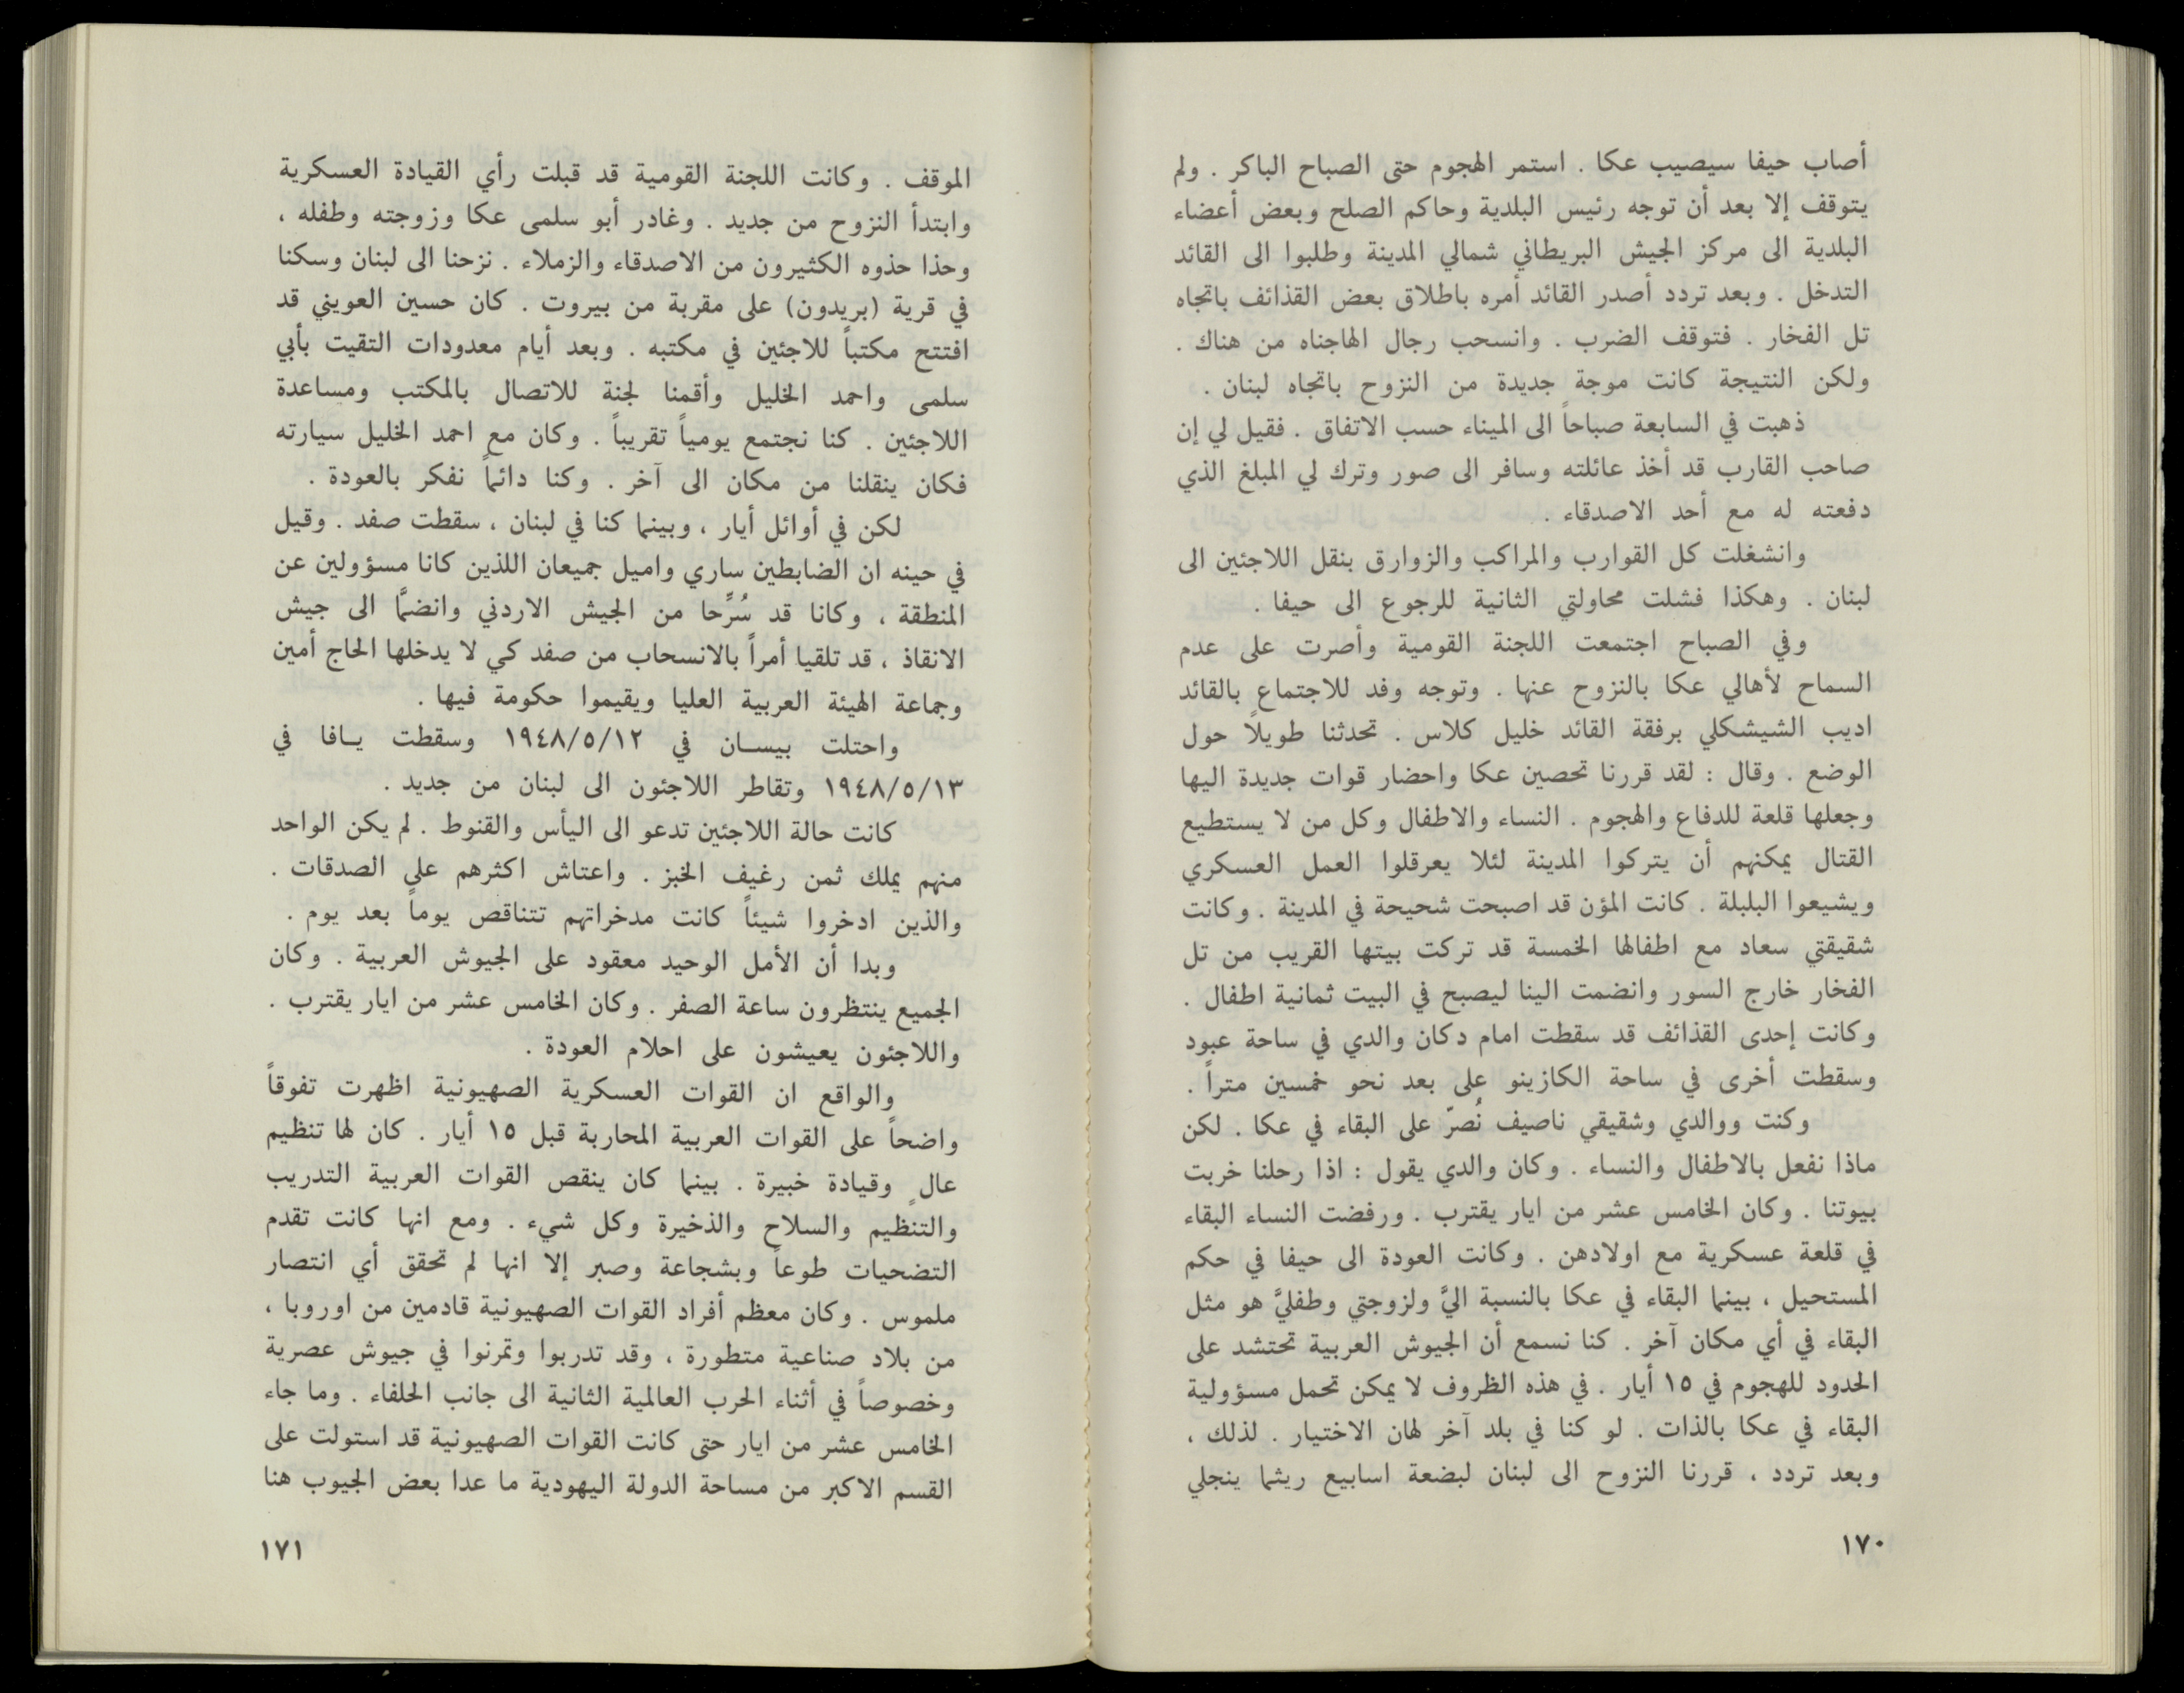 أصاب حيفا سيصيب عكا . استمر الهجوم حتى الصباح الباكر . ولم
يتوقف إلا بعد أن توجه رئيس البلدية وحاكم الصلح وبعض أعضاء
البلدية الى مركز الجيش البريطاني شمالي المدينة وطلبوا الى القائد
التدخل . وبعد تردد أصدر القائد أمره باطلاق بعض القذائف باتجاه
تل الفخار . فتوقف الضرب . وانسحب رجال الهاجناه من هناك .
ولكن النتيجة كانت موجة جديدة من النزوح باتجاه لبنان .
ذهبت في السابعة صباحاً الى الميناء حسب الاتفاق . فقيل لي إن
صاحب القارب قد أخذ عائلته وسافر الى صور وترك لي المبلغ الذي
دفعته له مع أحد الاصدقاء .
وانشغلت كل القوارب والمراكب والزوارق بنقل اللاجئين الى
لبنان . وهكذا فشلت محاولتي الثانية للرجوع الى حيفا .
وفي الصباح اجتمعت اللجنة القومية وأصرت على عدم
السماح لأهالي عكا بالنزوح عنها . وتوجه وفد للاجتماع بالقائد
اديب الشيشكلي برفقة القائد خليل كلاس . تحدثنا طويلاً حول
الوضع . وقال : لقد قررنا تحصين عكا واحضار قوات جديدة اليها
وجعلها قلعة للدفاع والهجوم . النساء والاطفال وكل من لا يستطيع
القتال يمكنهم أن يتركوا المدينة لئلا يعرقلوا العمل العسكري
ويشيعوا البلبلة . كانت المؤن قد اصبحت شحيحة في المدينة . وكانت
شقيقتي سعاد مع اطفالها الخمسة قد تركت بيتها القريب من تل
الفخار خارج السور وانضمت الينا ليصبح في البيت ثمانية اطفال .
وكانت إحدى القذائف قد سقطت امام دكان والدي في ساحة عبود
وسقطت أخرى في ساحة الكازينو على بعد نحو خمسين متراً .
وكنت ووالدي وشقيقي ناصيف نُصرّ على البقاء في عكا . لكن
ماذا نفعل بالاطفال والنساء . وكان والدي يقول : اذا رحلنا خربت
بيوتنا . وكان الخامس عشر من ايار يقترب . ورفضت النساء البقاء
في قلعة عسكرية مع اولادهن . وكانت العودة الى حيفا في حكم
المستحيل ، بينما البقاء في عكا بالنسبة اليَّ ولزوجتي وطفليَّ هو مثل
البقاء في أي مكان آخر . كنا نسمع أن الجيوش العربية تحتشد على
الحدود للهجوم في ١٥ أيار . في هذه الظروف لا يمكن تحمل مسؤولية
البقاء في عكا بالذات . لو كنا في بلد آخر لهان الاختيار . لذلك ،
وبعد تردد ، قررنا النزوح الى لبنان لبضعة اسابيع ريثما ينجلي
١٧٠
الموقف . وكانت اللجنة القومية قد قبلت رأي القيادة العسكرية
وابتدأ النزوح من جديد . وغادر أبو سلمى عكا وزوجته وطفله ،
وحذا حذوه الكثيرون من الاصدقاء والزملاء . نزحنا الى لبنان وسكنا
في قرية (بريدون) على مقربة من بيروت . كان حسين العويني قد
افتتح مكتباً للاجئين في مكتبه . وبعد أيام معدودات التقيت بأبي
سلمى واحمد الخليل وأقمنا لجنة للاتصال بالمكتب ومساعدة
اللاجئين . كنا نجتمع يومياً تقريباً . وكان مع احمد الخليل سيارته
فكان ينقلنا من مكان الى آخر . وكنا دائماً نفكر بالعودة .
لكن في أوائل أيار ، وبينما كنا في لبنان ، سقطت صفد . وقيل
في حينه ان الضابطين ساري واميل جميعان اللذين كانا مسؤولين عن
المنطقة ، وكانا قد سُرِّحا من الجيش الاردني وانضمَّا الى جيش
الانقاذ ، قد تلقيا أمراً بالانسحاب من صفد كي لا يدخلها الحاج أمين
وجماعة الهيئة العربية العليا ويقيموا حكومة فيها .
واحتلت بيسـان في ١٩٤٨/٥/١٢ وسقطت يـافا في
١٩٤٨/٥/١٣ وتقاطر اللاجئون الى لبنان من جديد .
كانت حالة اللاجئين تدعو الى اليأس والقنوط . لم يكن الواحد
منهم يملك ثمن رغيف الخبز . واعتاش اكثرهم على الصدقات .
والذين ادخروا شيئاً كانت مدخراتهم تتناقص يوماً بعد يوم .
وبدا أن الأمل الوحيد معقود على الجيوش العربية . وكان
الجميع ينتظرون ساعة الصفر . وكان الخامس عشر من ايار يقترب .
واللاجئون يعيشون على احلام العودة .
والواقع ان القوات العسكرية الصهيونية اظهرت تفوقاً
واضحاً على القوات العربية المحاربة قبل ١٥ أيار . كان لها تنظيم
عالٍ وقيادة خبيرة . بينما كان ينقص القوات العربية التدريب
والتنظيم والسلاح والذخيرة وكل شيء . ومع انها كانت تقدم
التضحيات طوعاً وبشجاعة وصبر إلا انها لم تحقق أي انتصار
ملموس . وكان معظم أفراد القوات الصهيونية قادمين من اوروبا ،
من بلاد صناعية متطورة ، وقد تدربوا وتمرنوا في جيوش عصرية
وخصوصاً في أثناء الحرب العالمية الثانية الى جانب الحلفاء . وما جاء
الخامس عشر من ايار حتى كانت القوات الصهيونية قد استولت على
القسم الاكبر من مساحة الدولة اليهودية ما عدا بعض الجيوب هنا
١٧١